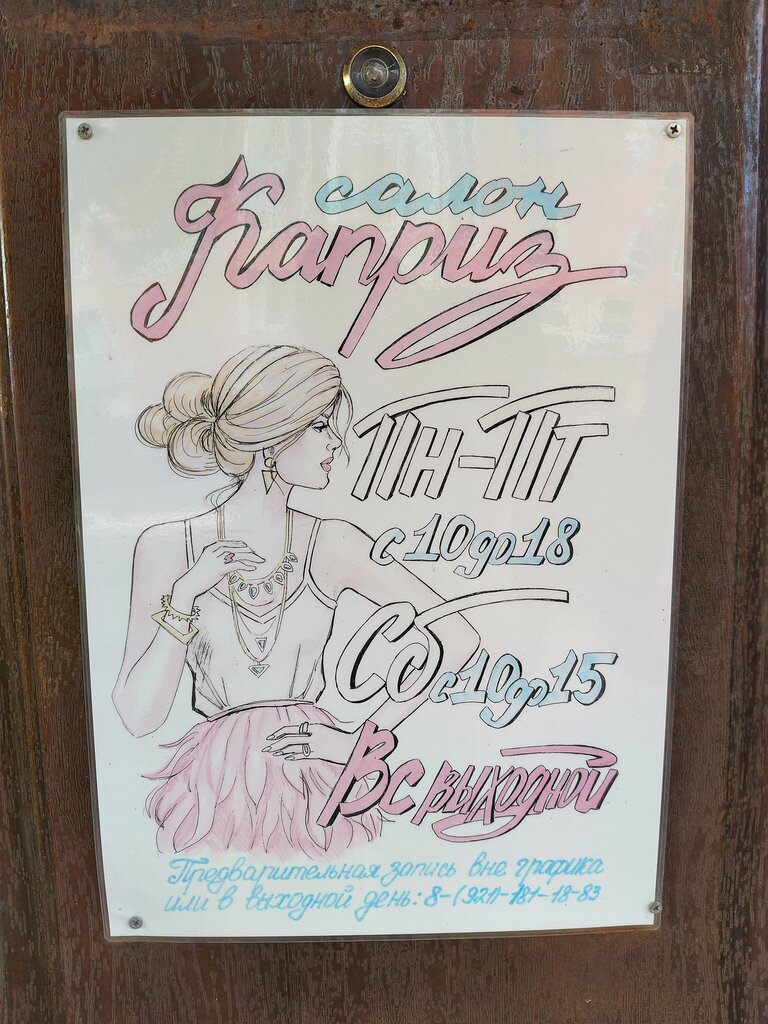 салон
Каприз
Пн-Пт
с 10 до 18
Сб с 10 до 15
Вс выходной
Предварительная запись вне графика
или в выходной день: 8-(921)-781-18-83